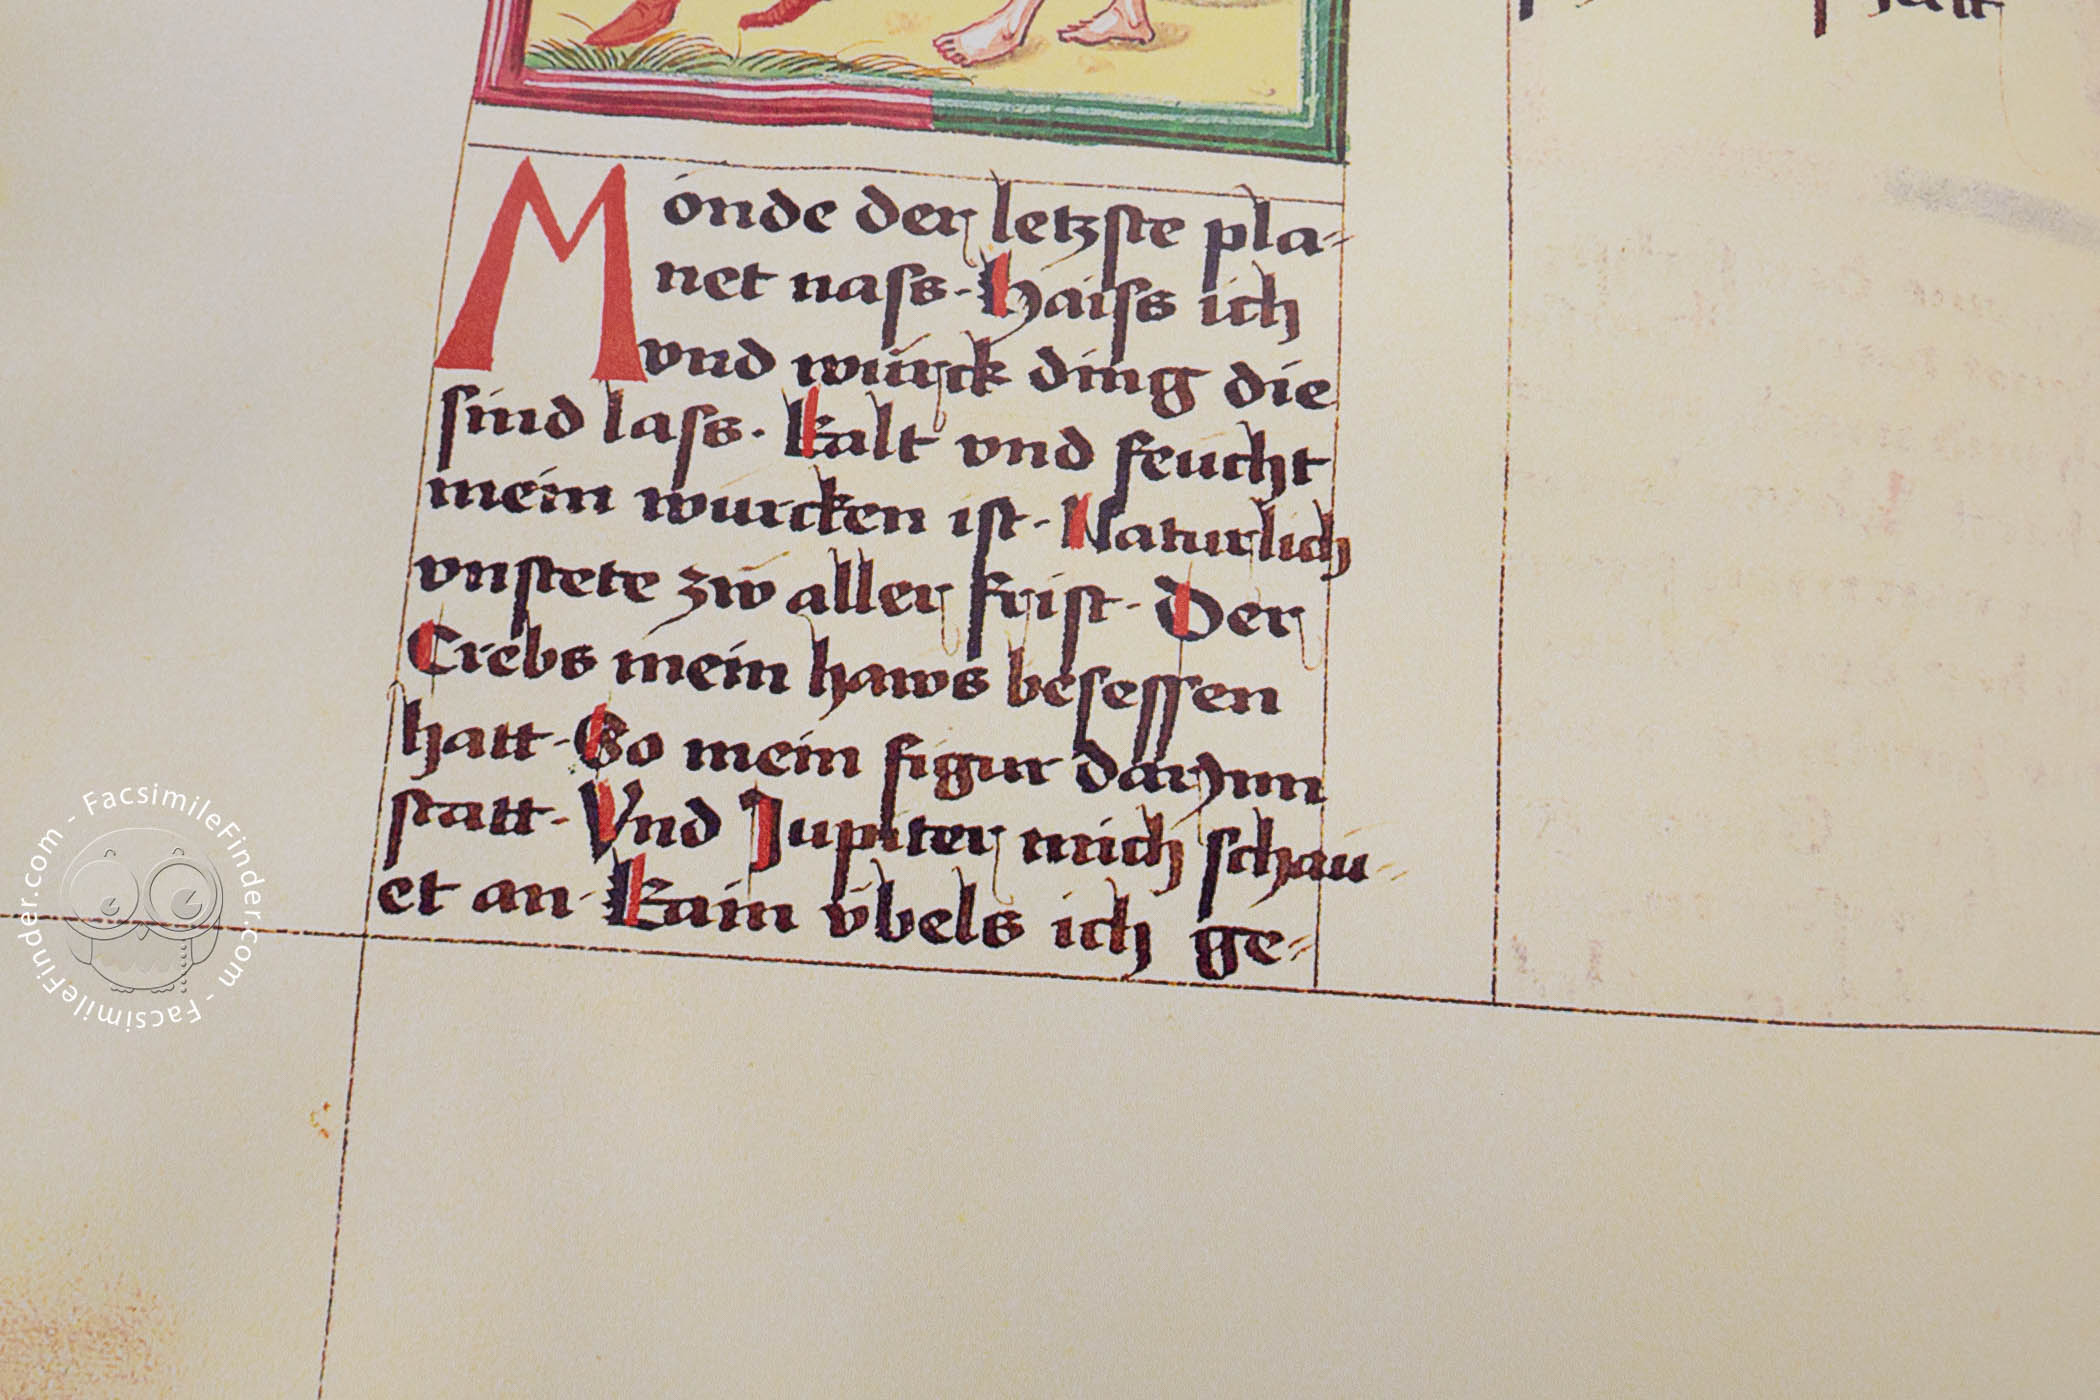 Monde der letzste pla-
net nass. Haiss ich
vnd würck ding die
sind lass. Kalt vnd feucht
mein wurcken ist. Naturlich
vnstete zw aller frist. Der
Crebs mein haws besessen
hatt. So mein figur darynn
statt. Vnd Jupiter mich schau
et an. Kain vbels ich ge-
FacsimileFinder.com - FacsimileFinder.com - FacsimileFinder.com